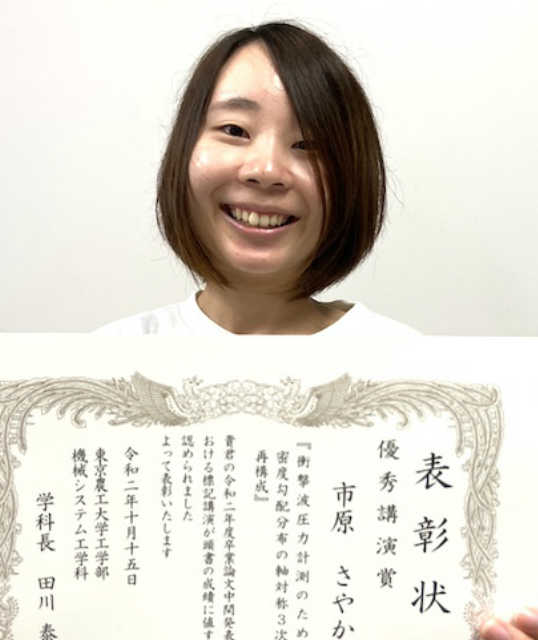 表彰状
優秀講演賞
市原 さやか
『衝撃波圧力計測のため
密度勾配分布の軸対称3次
再構成』
貴君の令和二年度卒業論文中間発表
おける標記講演が頭書の成績に値す
認められました
よって表彰いたします
令和二年十月十五日
東京農工大学工学部
機械システム工学科
学科長 田川 泰